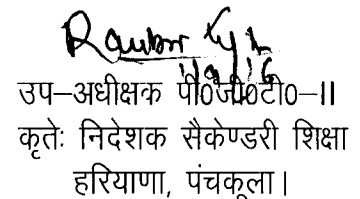 11/9/16
उप–अधीक्षक पी0जी0टी0–II
कृतेः निदेशक सैकेण्डरी शिक्षा
हरियाणा, पंचकूला।